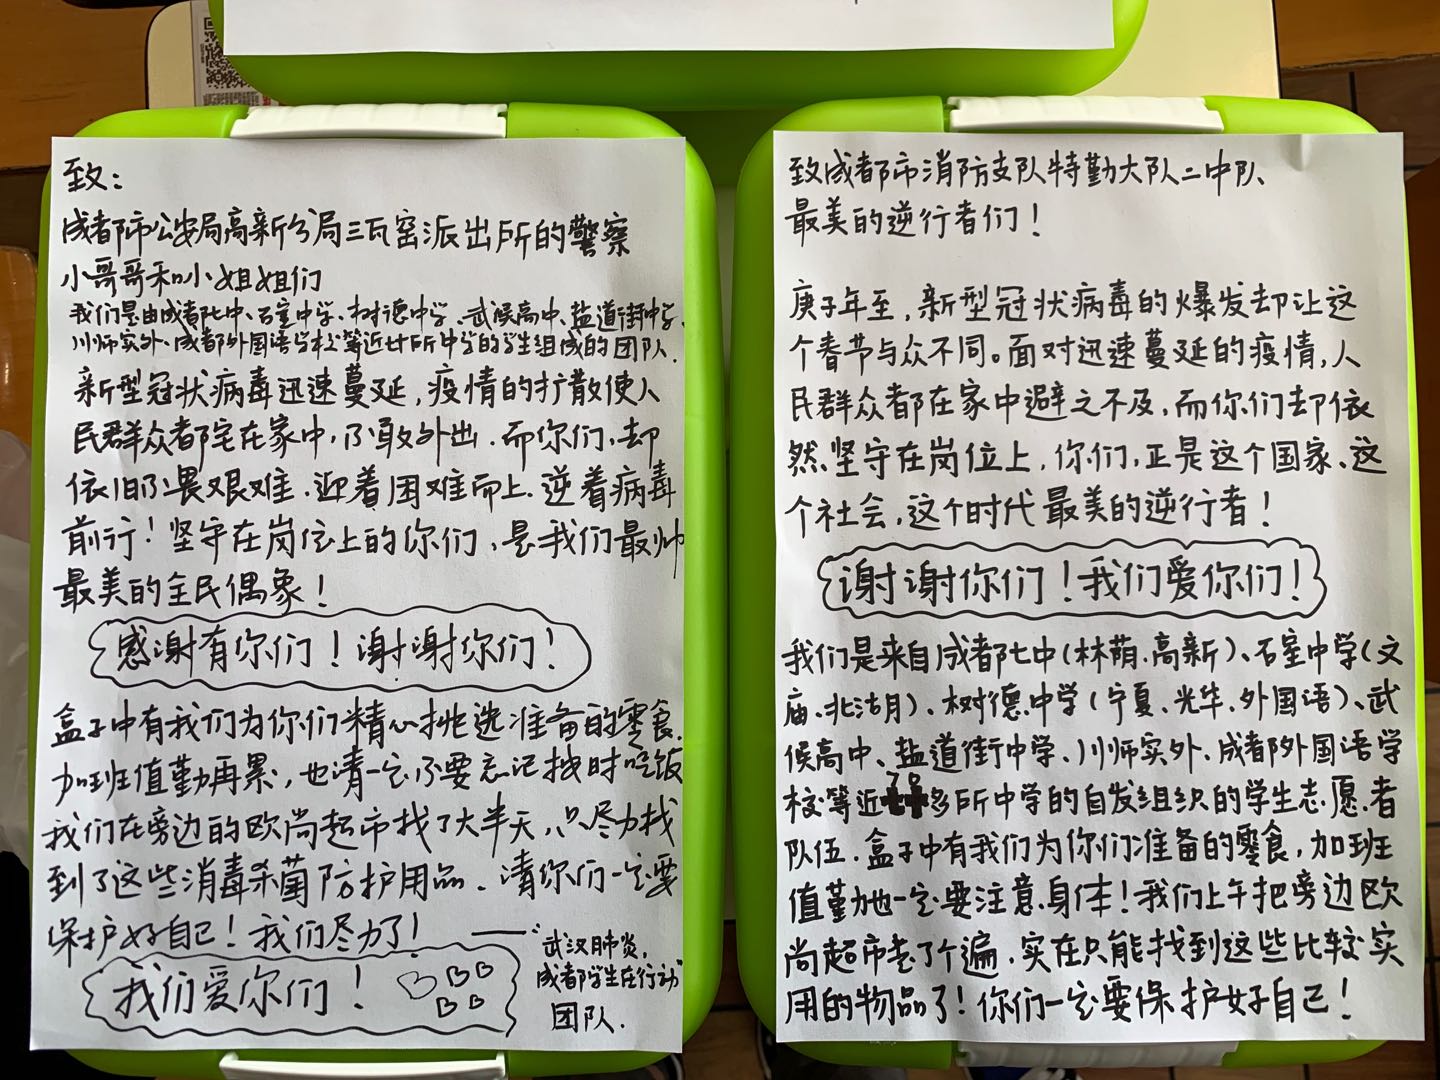 致：
成都市公安局高新分局三瓦窑派出所的警察
小哥哥和小姐姐们
我们是由成都七中、石室中学、树德中学、武候高中、盐道街中学、
川师实外、成都外国语学校等近廿所中学的学生组成的团队.
新型冠状病毒迅速蔓延,疫情的扩散使人
民群众都宅在家中,不敢外出.而你们,却
依旧不畏艰难.迎着困难而上.逆着病毒
前行!坚守在岗位上的你们、是我们最帅
最美的全民偶象!
感谢有你们!谢谢你们!
盒子中有我们为你们精心挑选准备的零食.
加班值勤再累,也请一定不要忘记找时吃饭
我们在旁边的欧尚超市找了大半天,只尽力找
到了这些消毒杀菌防护用品.请你们一定要
保护好自己!我们尽力了!
我们爱你们!
——“武汉肺炎,
成都学生在行动”
团队.
致成都市消防支队特勤大队二中队、
最美的逆行者们!
庚子年至,新型冠状病毒的爆发却让这
个春节与众不同。面对迅速蔓延的疫情,人
民群众都在家中避之不及,而你们却依
然坚守在岗位上,你们,正是这个国家、这
个社会,这个时代最美的逆行者!
谢谢你们!我们爱你们!
我们是来自成都七中(林荫.高新)、石室中学(文
庙、北湖)、树德中学(宁夏、光华、外国语)、武
候高中、盐道街中学、川师实外、成都外国语学
校等近20多所中学的自发组织的学生志愿者
队伍.盒子中有我们为你们准备的零食,加班
值勤也一定要注意身体!我们上午把旁边欧
尚超市走了个遍.实在只能找到这些比较实
用的物品了!你们一定要保护好自己!